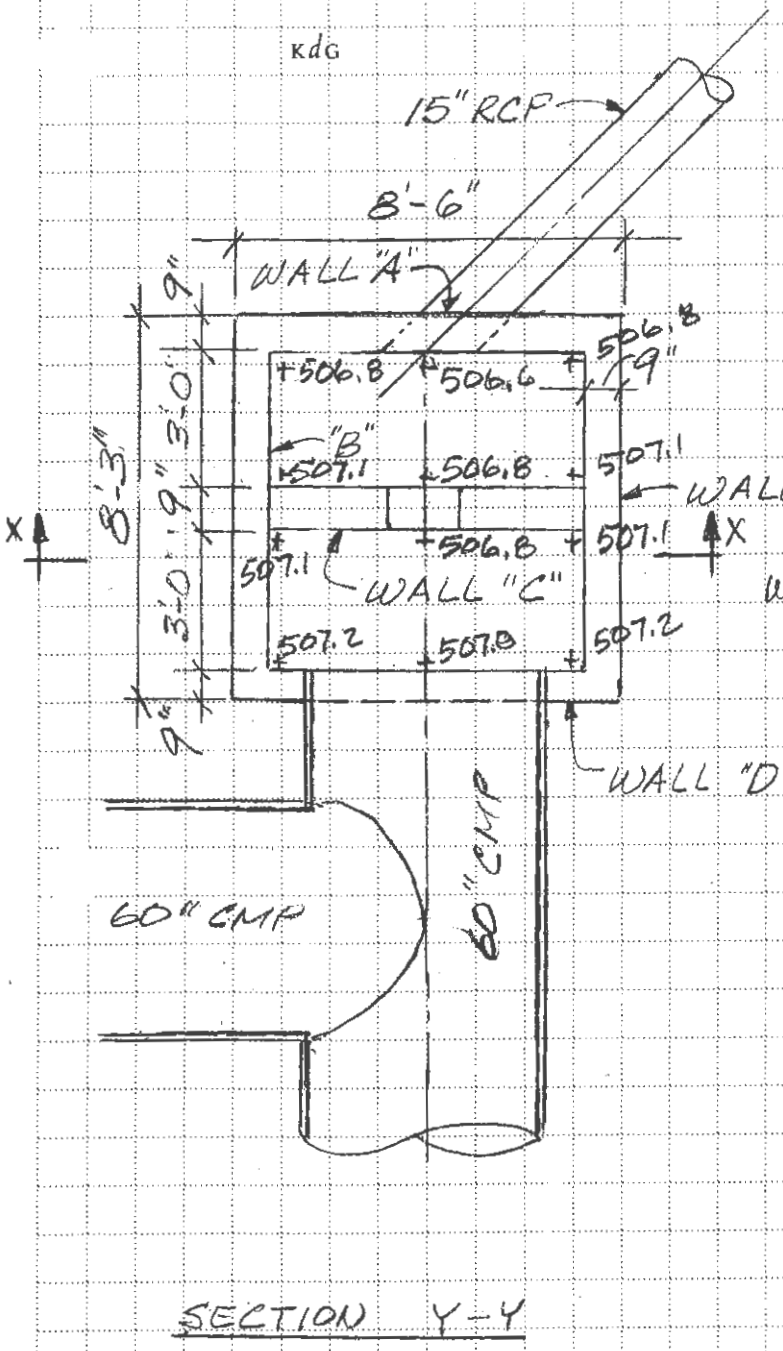 KdG
15" RCP
8'-6"
WALL "A"
9"
506.8
9"
+506.8
506.6
3'-0"
"B"
507.1
506.8
507.1
8'-3"
9"
WALL
X
X
507.1
506.8
507.1
WALL "C"
W
3'-0"
507.2
507.2
9"
WALL "D
60" CMP
60" CMP
SECTION Y-Y